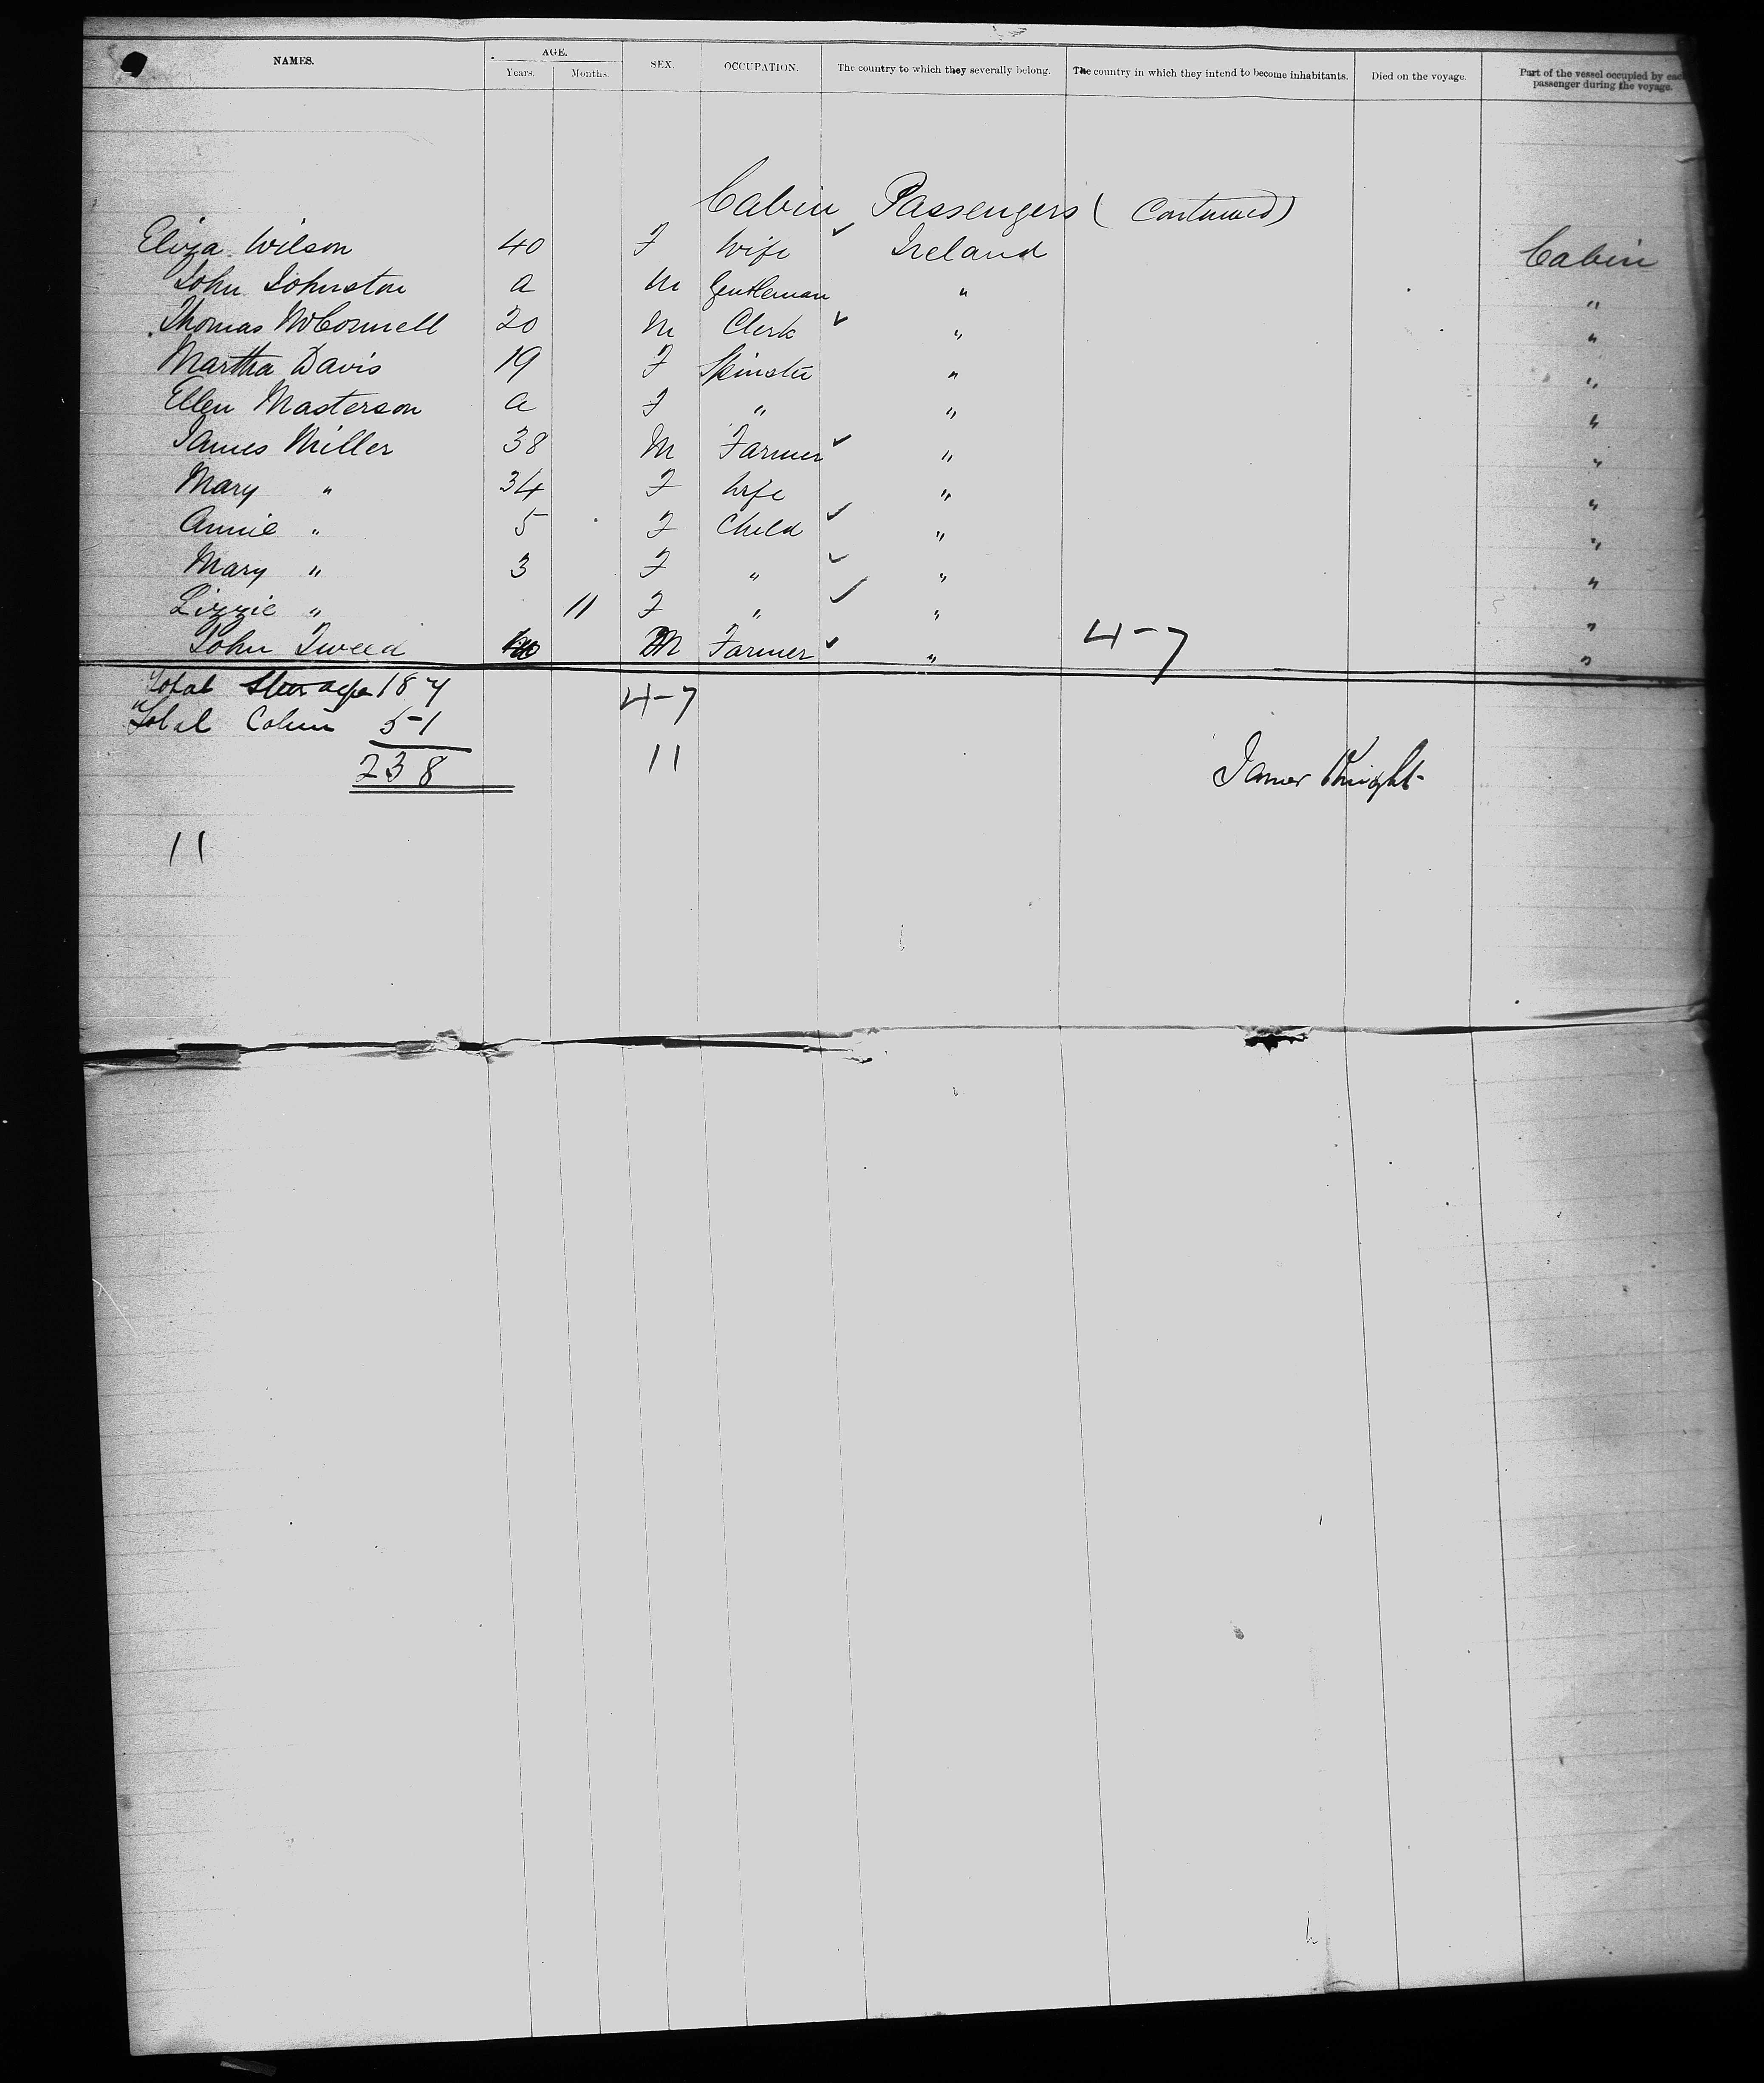 NAMES. AGE. SEX. OCCUPATION. The country to which they severally belong. The country in which they intend to become inhabitants. Died on the voyage. Part of the vessel occupied by each passenger during the voyage.
Years. Months.
Cabin Passengers (Continued)
Eliza Wilson 40 F Wife ✓ Ireland Cabin
John Johnston a M Gentleman " "
Thomas McConnell 20 M Clerk ✓ " "
Martha Davis 19 F Spinster " "
Ellen Masterson a F " " "
James Miller 38 M Farmer ✓ " "
Mary " 34 F Wife " "
Annie " 5 F Child ✓ " "
Mary " 3 F " ✓ " "
Lizzie " 11 F " ✓ " "
John Tweed M Farmer ✓ " 4-7 "
Total Steerage 187 4-7
Total Cabin 51
238 11 James Knight
11